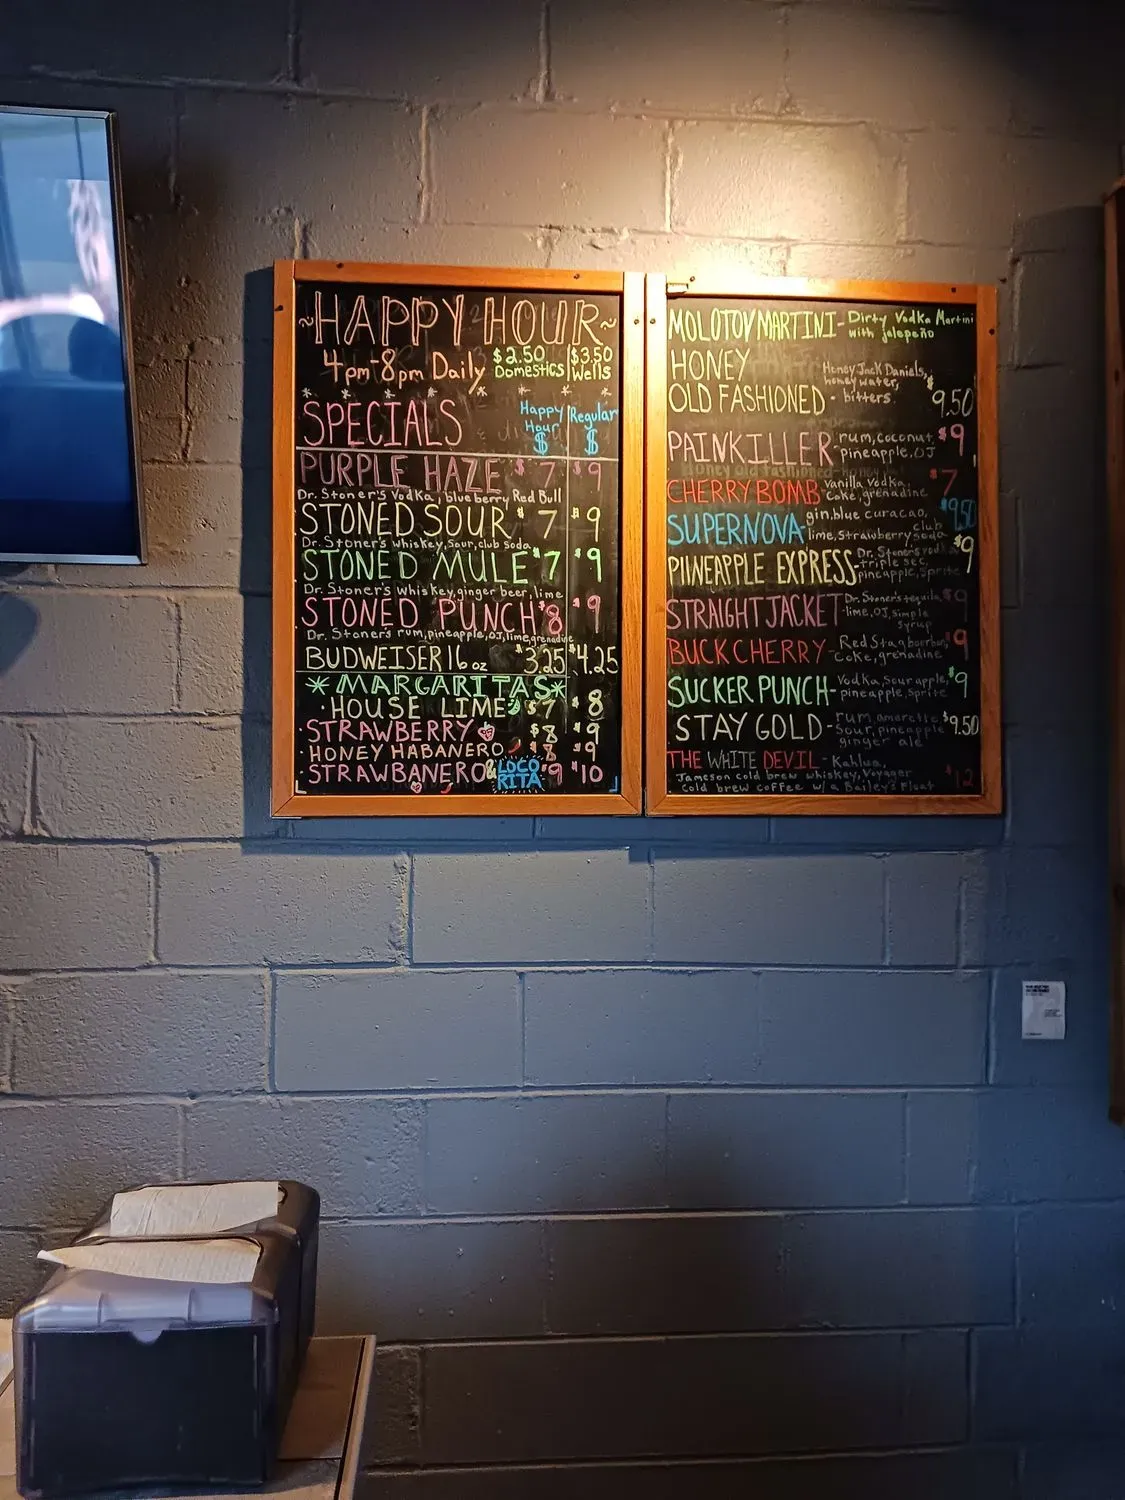 ~HAPPY HOUR~
4pm-8pm Daily $2.50 Domestics | $3.50 Wells
SPECIALS Happy Hour $ Regular $
PURPLE HAZE $7 $9
Dr. Stoner's Vodka, blueberry Red Bull
STONED SOUR $7 $9
Dr. Stoner's whiskey, sour, club soda
STONED MULE $7 $9
Dr. Stoner's whiskey, ginger beer, lime
STONED PUNCH $8 $9
Dr. Stoner's rum, pineapple, OJ, lime, grenadine
BUDWEISER 16 oz $3.25 $4.25
*MARGARITAS*
·HOUSE LIME $7 $8
·STRAWBERRY $8 $9
·HONEY HABANERO $8 $9
·STRAWBANERO & LOCO RITA $9 $10
MOLOTOV MARTINI- Dirty Vodka Martini
with jalepeño
HONEY
OLD FASHIONED - Honey Jack Daniels,
honey water,
bitters. $9.50
PAINKILLER- rum, coconut, $9
pineapple, OJ
CHERRY BOMB- vanilla vodka, $7
coke, grenadine
SUPERNOVA- gin, blue curacao, $9.50
lime, strawberry club soda
PINEAPPLE EXPRESS- Dr. Stoner's vodka $9
triple sec,
pineapple, Sprite
STRAIGHT JACKET- Dr. Stoner's tequila $9
lime, OJ, simple
syrup
BUCK CHERRY- Red Stag bourbon, $9
coke, grenadine
SUCKER PUNCH- Vodka, sour apple, $9
pineapple, Sprite
STAY GOLD- rum, amaretto $9.50
sour, pineapple
ginger ale
THE WHITE DEVIL- Kahlua,
Jameson cold brew whiskey, Voyager
Cold brew coffee w/ a Bailey's Float $12